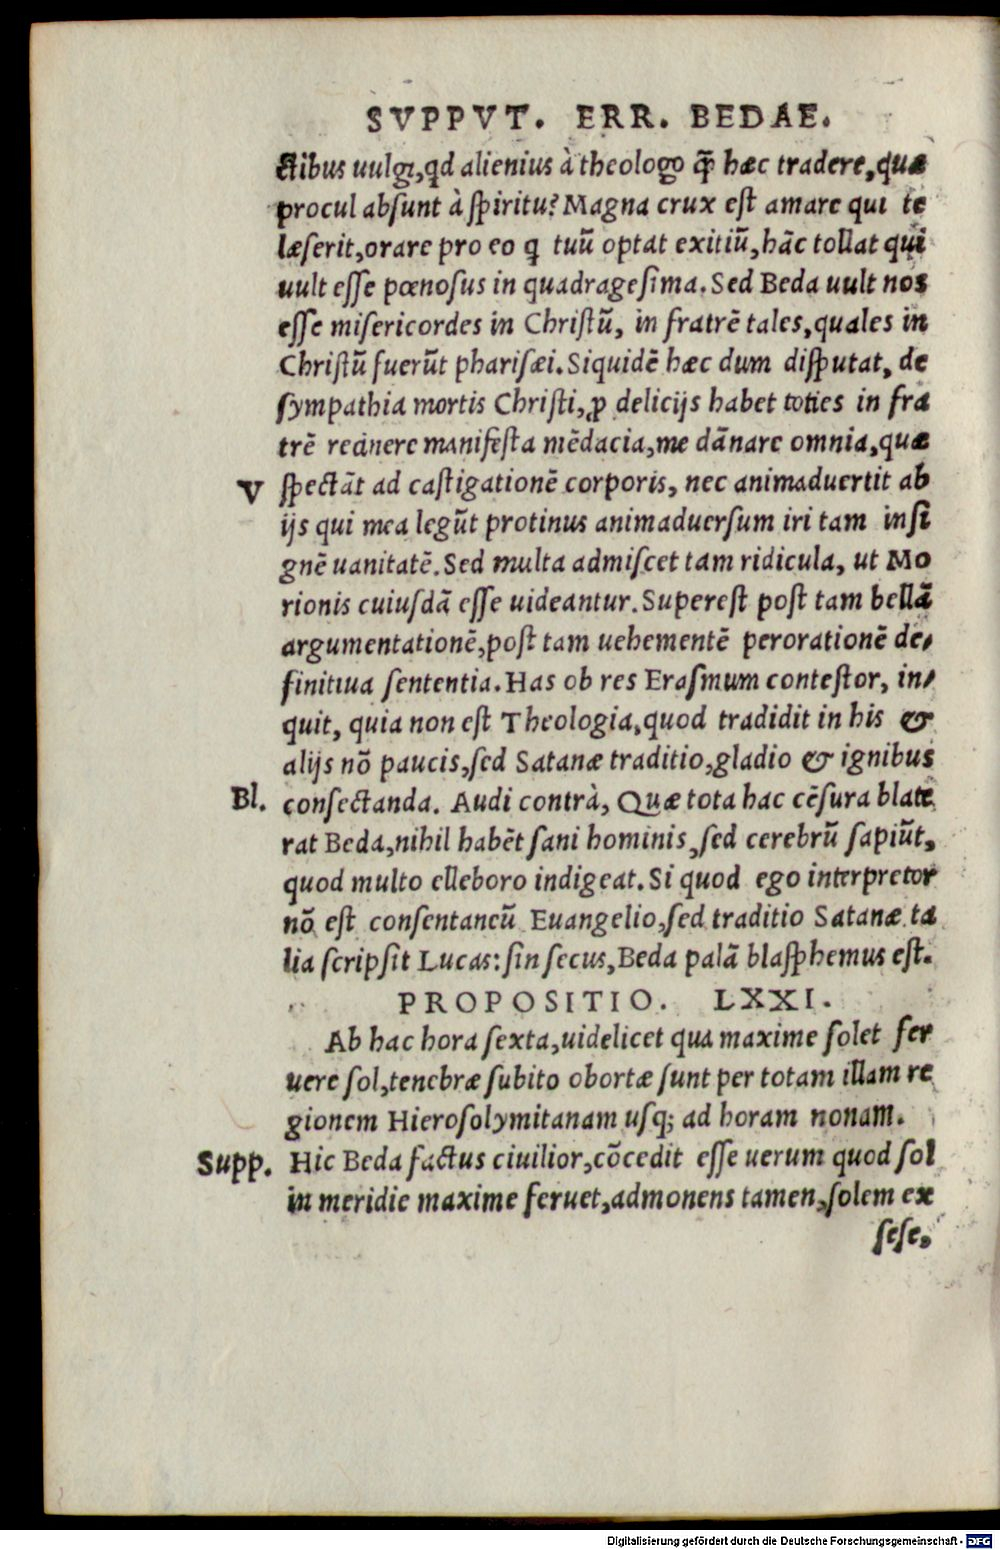 SVPPVT. ERR. BEDAE.
ctibus uulgi, qd alienius à theologo q̃ hæc tradere, quæ
procul absunt à spiritu? Magna crux est amare qui te
læserit, orare pro eo q tuũ optat exitiũ, hãc tollat qui
uult esse pœnosus in quadragesima. Sed Beda uult nos
esse misericordes in Christũ, in fratrẽ tales, quales in
Christũ fuerũt pharisæi. Siquidẽ hæc dum disputat, de
sympathia mortis Christi, ꝓ delicijs habet toties in fra
trẽ recinere manifesta mẽdacia, me dãnare omnia, quæ
V spectãt ad castigationẽ corporis, nec animaduertit ab
ijs qui mea legũt protinus animaduersum iri tam insi
gnẽ uanitatẽ. Sed multa admiscet tam ridicula, ut Mo
rionis cuiusdã esse uideantur. Superest post tam bellã
argumentationẽ, post tam uehementẽ perorationẽ de⸗
finitiua sententia. Has ob res Erasmum contestor, in⸗
quit, quia non est Theologia, quod tradidit in his &
alijs nõ paucis, sed Satanæ traditio, gladio & ignibus
Bl. consectanda. Audi contrà, Quæ tota hac cẽsura blate
rat Beda, nihil habẽt sani hominis, sed cerebrũ sapiũt,
quod multo elleboro indigeat. Si quod ego interpretor
nõ est consentaneũ Euangelio, sed traditio Satanæ ta
lia scripsit Lucas: sin secus, Beda palã blasphemus est.
PROPOSITIO. LXXI.
Ab hac hora sexta, uidelicet qua maxime solet fer
uere sol, tenebræ subito obortæ sunt per totam illam re
gionem Hierosolymitanam usq; ad horam nonam.
Supp. Hic Beda factus ciuilior, cõcedit esse uerum quod sol
in meridie maxime feruet, admonens tamen, solem ex
sese,
Digitalisierung gefördert durch die Deutsche Forschungsgemeinschaft - DFG